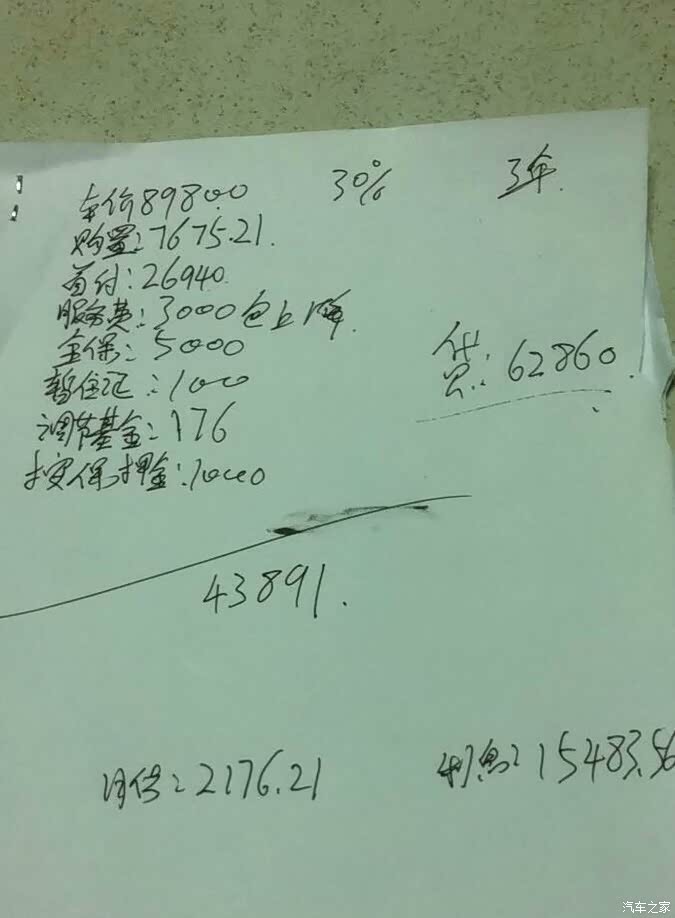 车价89800 30% 3年.
购置:7675.21.
首付:26940.
服务费:3000包上牌.
全保:5000
贷:62860.
暂住证:100
调节基金:176
按保押金:1000
43891.
月供:2176.21
利息:15483.56
汽车之家